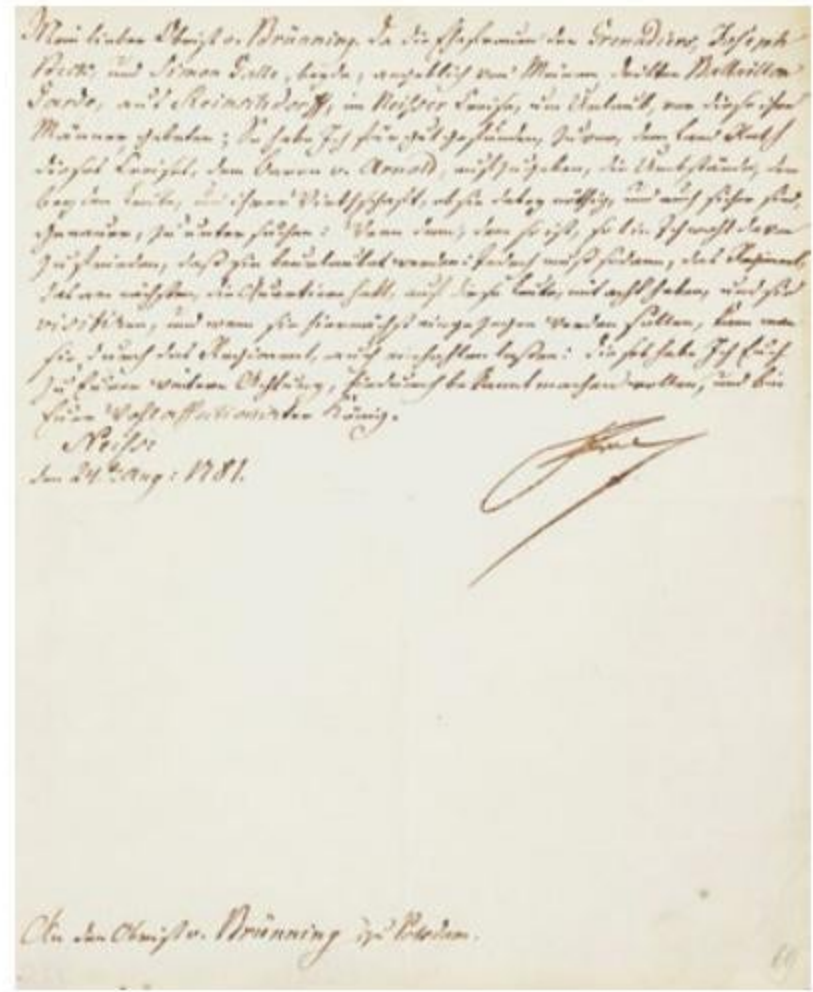 Mein lieber Obrist v. Brünning. Da die Ehefrauen der Grenadiers, Joseph
und Simon Galle, beyde, angeblich von Meinem dritten Bataillon
Garde, aus Reinschdorff, im Neisser Creise, um Uhrlaub, vor diese ihre
Männer, gebeten; So habe Ich für gut gefunden, zuvor, dem Land Rath
dieses Creises, dem Baron v. Arnold, aufzugeben, die Umbstände, der
beyden Leute, und ihrer Wirthschaft, ob sie dabey nöthig, und auch sicher sind,
genauer, zu untersuchen: Wenn dem, dem so ist, so bin Ich wohl davon
zufrieden, daß sie beurlaubet werden: jedoch muß sodann, das Regiment,
das am nächsten, die Quartiere hatt, auf diese Leute, mit acht haben, und sie
visitiren, und wenn sie hiernächst eingezogen werden sollen, kann man
sie durch das Regiment, auch einhohlen laßen: dieses habe Ich Euch
zu Eurer weitern Achtung, hiedurch bekannt machen wollen, und bin
Euer wohlaffectionirter König.
Neisse
den 24ten Aug: 1781.
An den Obrist v. Brünning zu Potsdam.